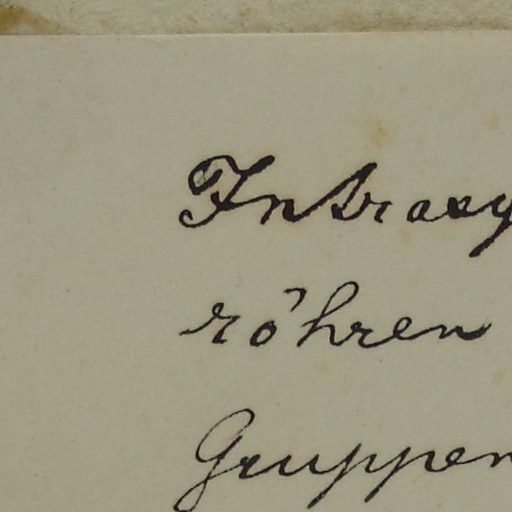 Intraxy
röhren
Gruppen